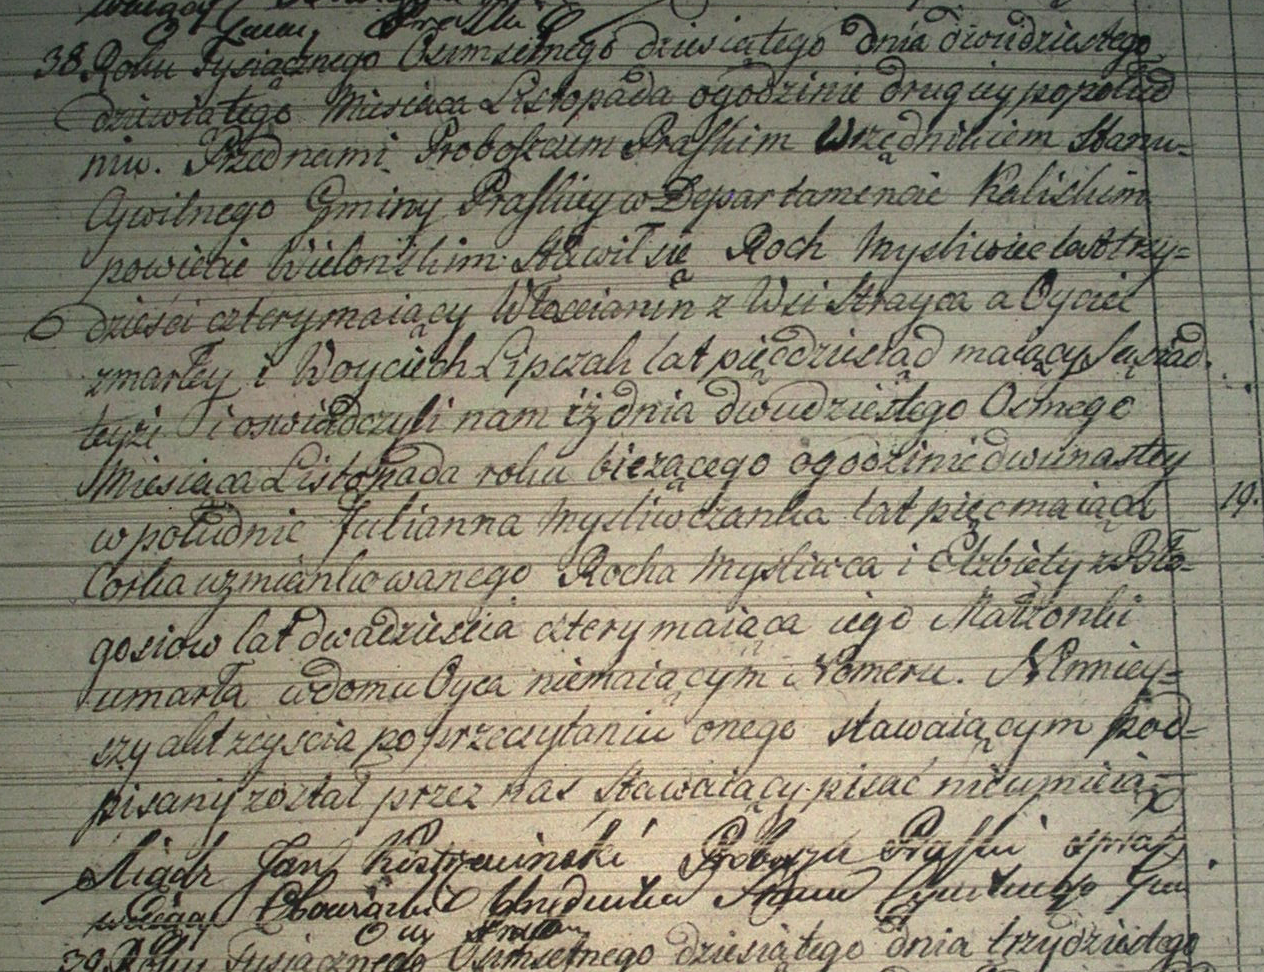 38. Roku Tysiącznego Osmsetnego dziesiątego dnia dwudziestego
dziewiątego Miesiąca Listopada ogodzinie drugiey popołud
niu. Przed nami Proboszczem Praskim Urzędnikiem Stanu-
Cywilnego Gminy Praskiey w Departamencie Kaliskim
powiecie Wielońskim Stawił się Roch Mysliwiec lat trzy=
dzieści cztery maiący Włoscianin z Wsi Strayca a Oyciec
zmarłey i Woyciech Lipczak lat pięćdziesiąd maiący Sąsiad.
teyże i oswiadczyli nam iż dnia dwudziestego Osmego
Miesiąca Listopada roku bieżącego ogodzinie dwunastey
w południe Julianna Mysliwczanka lat pięc maiąca
Corka wzmiankowanego Rocha Mysliwca i Elzbiety z Bło-
gosiow lat dwadzieścia cztery maiąca iego Małżonki
umarła w domu Oyca niemaiącym Nomeru. Ninniey=
szy akt zeyścia po przeczytaniu onego stawaiącym pod-
pisany został przez nas stawaiący pisać nieumieią
Xiądz Jan Proboszcz Praski spra
wuiący Obowiązki Urzędnika Stanu Cywilnego Gmi
ny
39. Roku Tysiącznego Osmsetnego dziesiątego dnia trzydziestego
19.